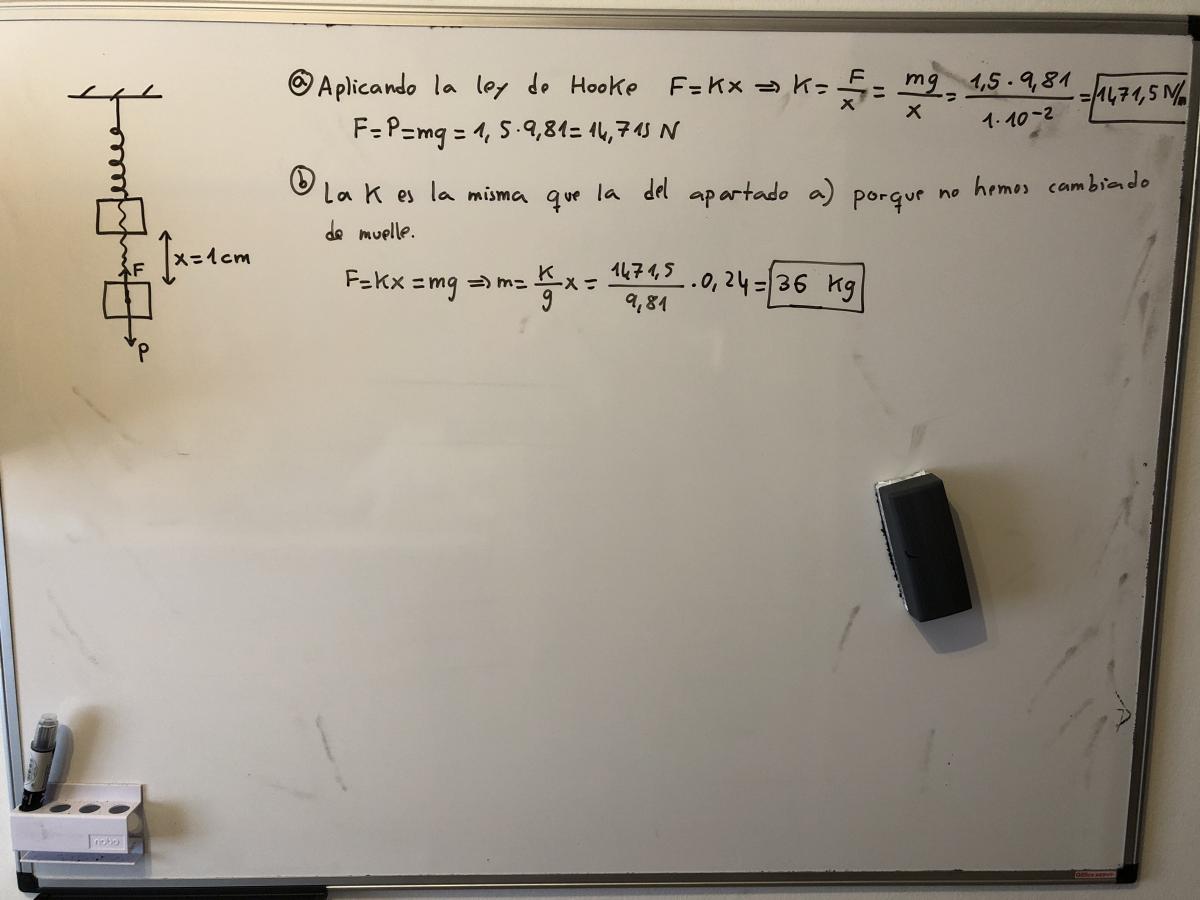 ⓐ Aplicando la ley de Hooke F=Kx ⇒ K= F/x = mg/x = 1,5·9,81/1·10⁻² = 1471,5 N/m
F=P=mg=1,5·9,81=14,715 N
ⓑ La K es la misma que la del apartado a) porque no hemos cambiado
de muelle.
F=Kx=mg ⇒ m= K/g x = 1471,5/9,81 ·0,24= 36 Kg
x=1cm
F
P
nobo
Office DEPOT